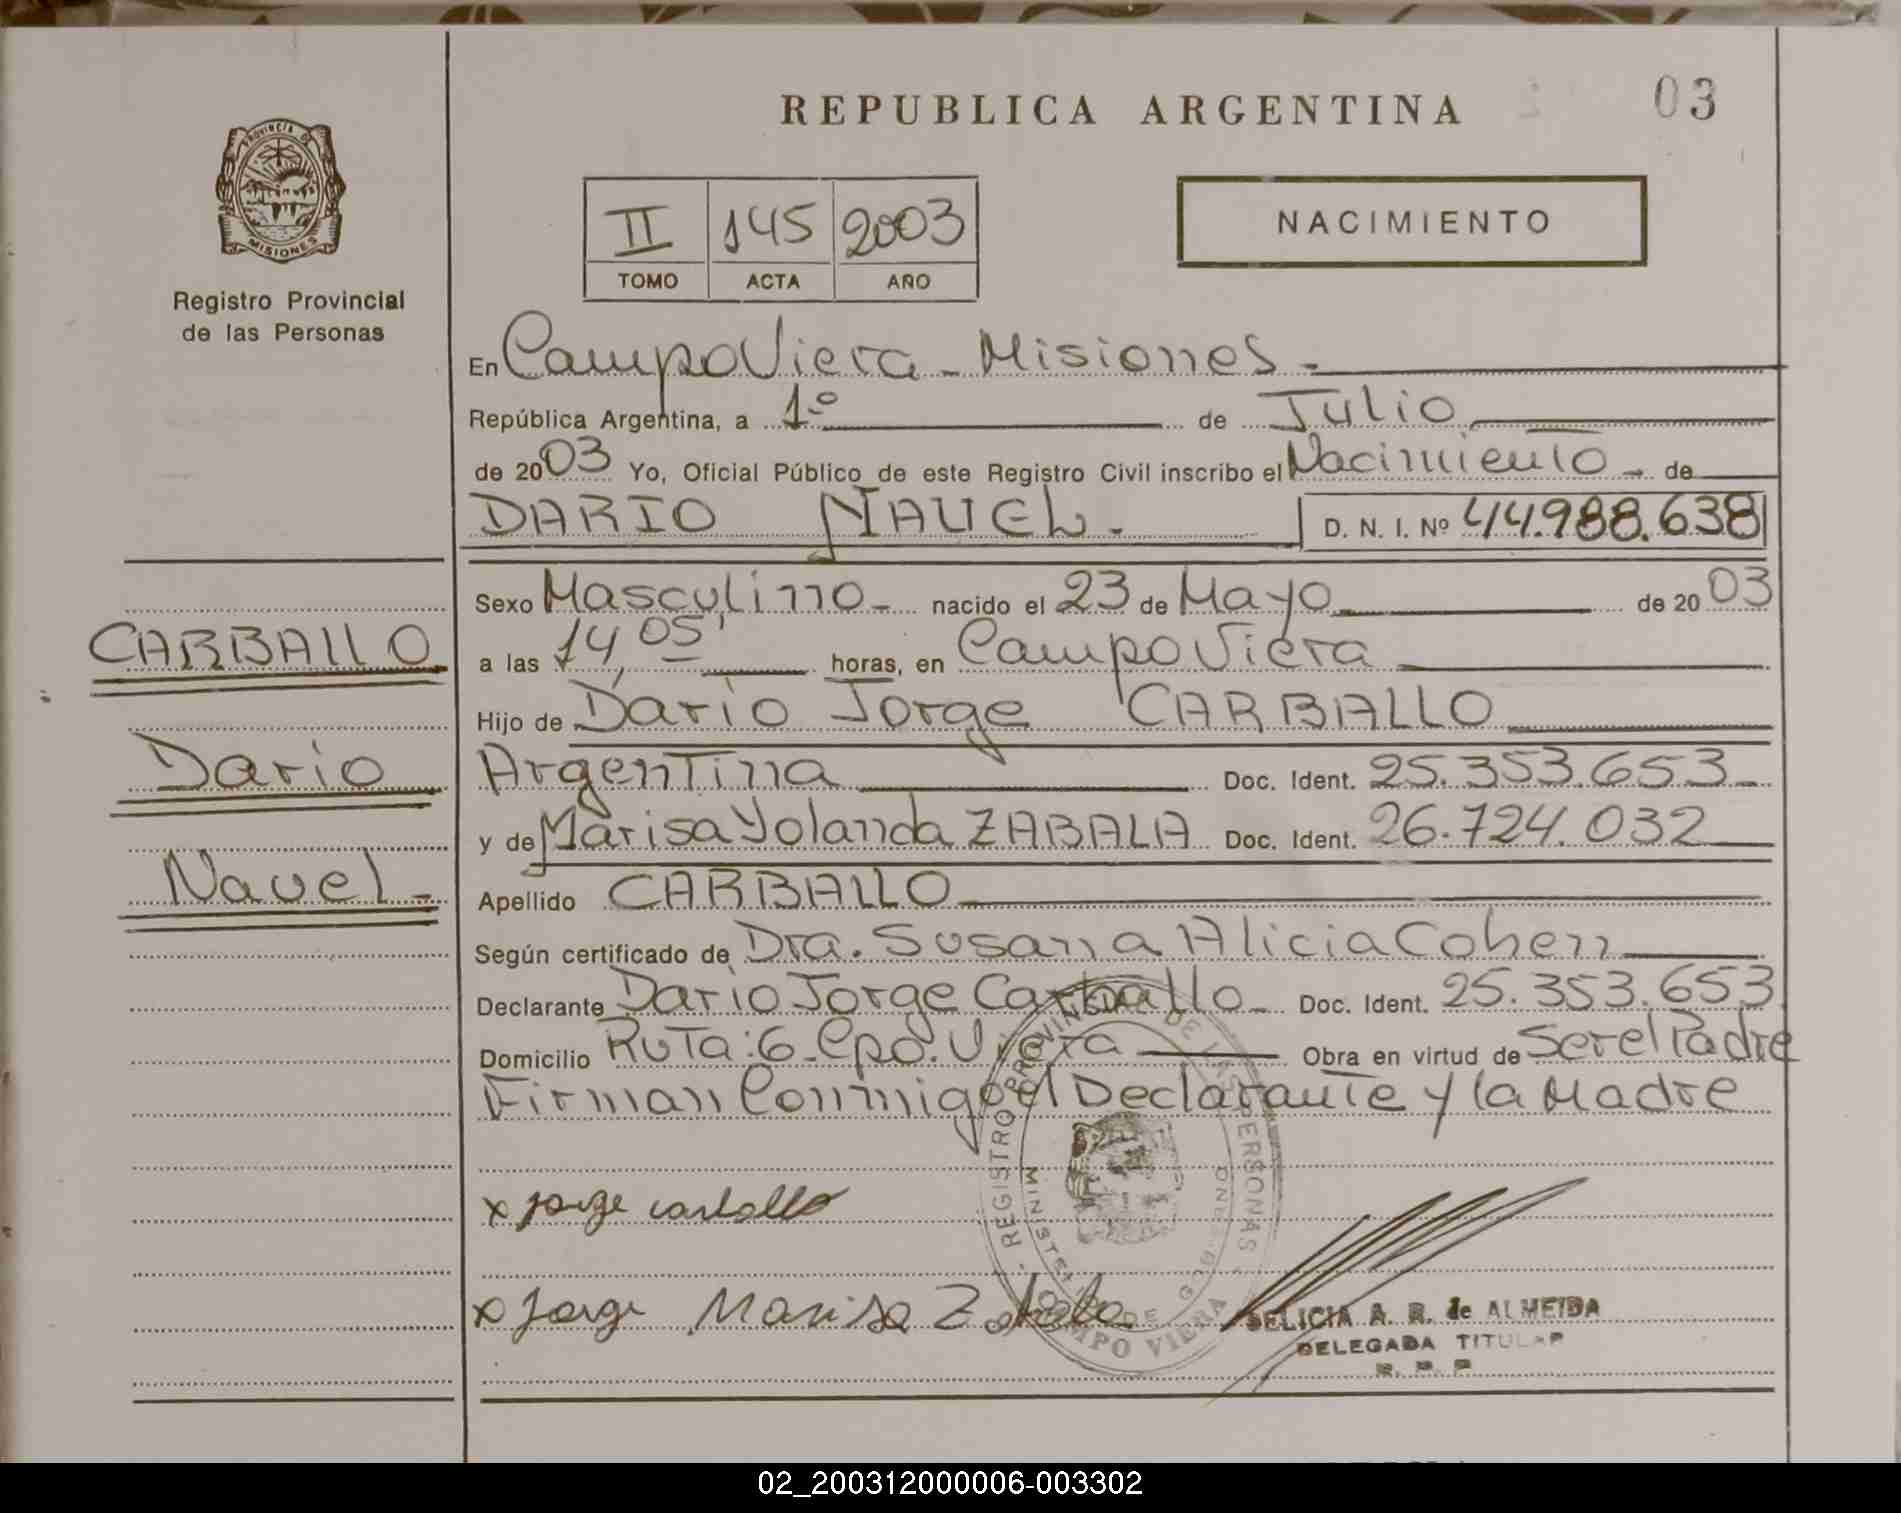 REPUBLICA ARGENTINA
03
PROVINCIA DE
MISIONES
Registro Provincial
de las Personas
II 145 2003
TOMO ACTA AÑO
NACIMIENTO
En Campo Viera - Misiones -
República Argentina, a 1º de Julio
de 2003 Yo, Oficial Público de este Registro Civil inscribo el Nacimiento - de
DARIO NAUEL - D. N. I. Nº 44.988.638
Sexo Masculino - nacido el 23 de Mayo de 2003
a las 14,05' horas, en Campo Viera
Hijo de Dario Jorge CARBALLO
Argentina Doc. Ident. 25.353.653 -
y de Marisa Yolanda ZABALA Doc. Ident. 26.724.032
Apellido CARBALLO
Según certificado de Dra. Susana Alicia Cohen
Declarante Dario Jorge Carballo - Doc. Ident. 25.353.653
Domicilio Ruta: 6 - Cpo. Viera Obra en virtud de Ser el Padre
Firman Conmigo el Declarante y la Madre
CARBALLO
Dario
Nauel -
x Jorge Carballo
x Jorge Marisa Zabala
REGISTRO PROVINCIAL DE LAS PERSONAS
CAMPO VIERA
DELICIA A. R. de ALMEIDA
DELEGADA TITULAR
R. P. P.
02_200312000006-003302